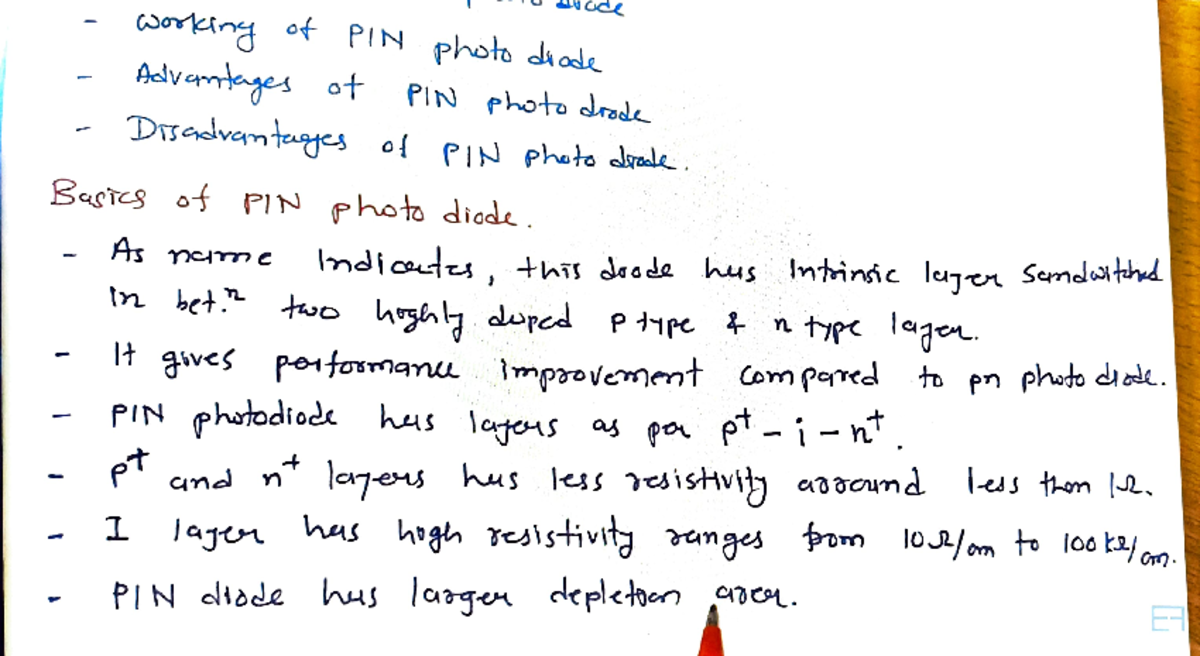 diode
- Working of PIN photo diode
- Advantages of PIN photo diode
- Disadvantages of PIN photo diode.
Basics of PIN photo diode.
- As name Indicates, this diode has Intrinsic layer Sandwitched
in bet.n two highly doped P type & n type layer.
- It gives performance improvement compared to pn photo diode.
- PIN photodiode has layers as per p+ - i - n+.
- p+ and n+ layers has less resistivity arround less than 1Ω.
- I layer has high resistivity ranges from 10Ω/cm to 100kΩ/cm.
- PIN diode has larger depletion area.